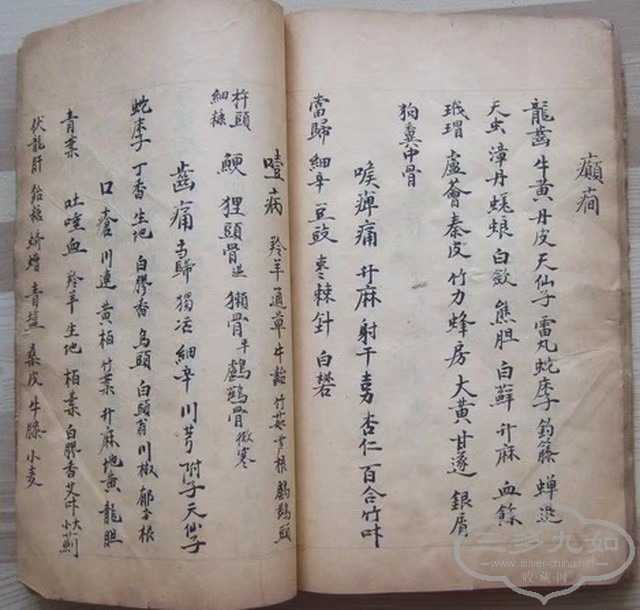 癲癇
龍齒 牛黃 丹皮 天仙子 雷丸 蛇床子 鈞籐 蟬退
天虫 漳丹 蜣蜋 白歛 熊胆 白蘚 升麻 血餘
玳瑁 盧薈 秦皮 竹力 蜂房 大黃 甘遂 銀屑
狗糞中骨
喉痺痛 升麻 射干 杏仁 百合 竹叶
當歸 細辛 豆豉 枣棘針 白礬
噎病 羚羊 通草 牛齝 竹茹 芦根 鸕鶿頭
杵頭細糠
鯁 狸頭骨温 獺骨平 鸕鶿骨微寒
齒痛 当歸 獨活 細辛 川芎 附子 天仙子
蛇床子 丁香 生地 白膠香 烏頭 白頭翁 川椒 郁李根
口瘡 川連 黃栢 竹葉 升麻 地黃 龍胆
青葉
吐唾血 羚羊 生地 栢葉 白膠香 艾叶 大小薊
伏龍肝 飴糖 蠐螬 青鹽 桑皮 牛膝 小麦
三多九如
www.silver-china.net